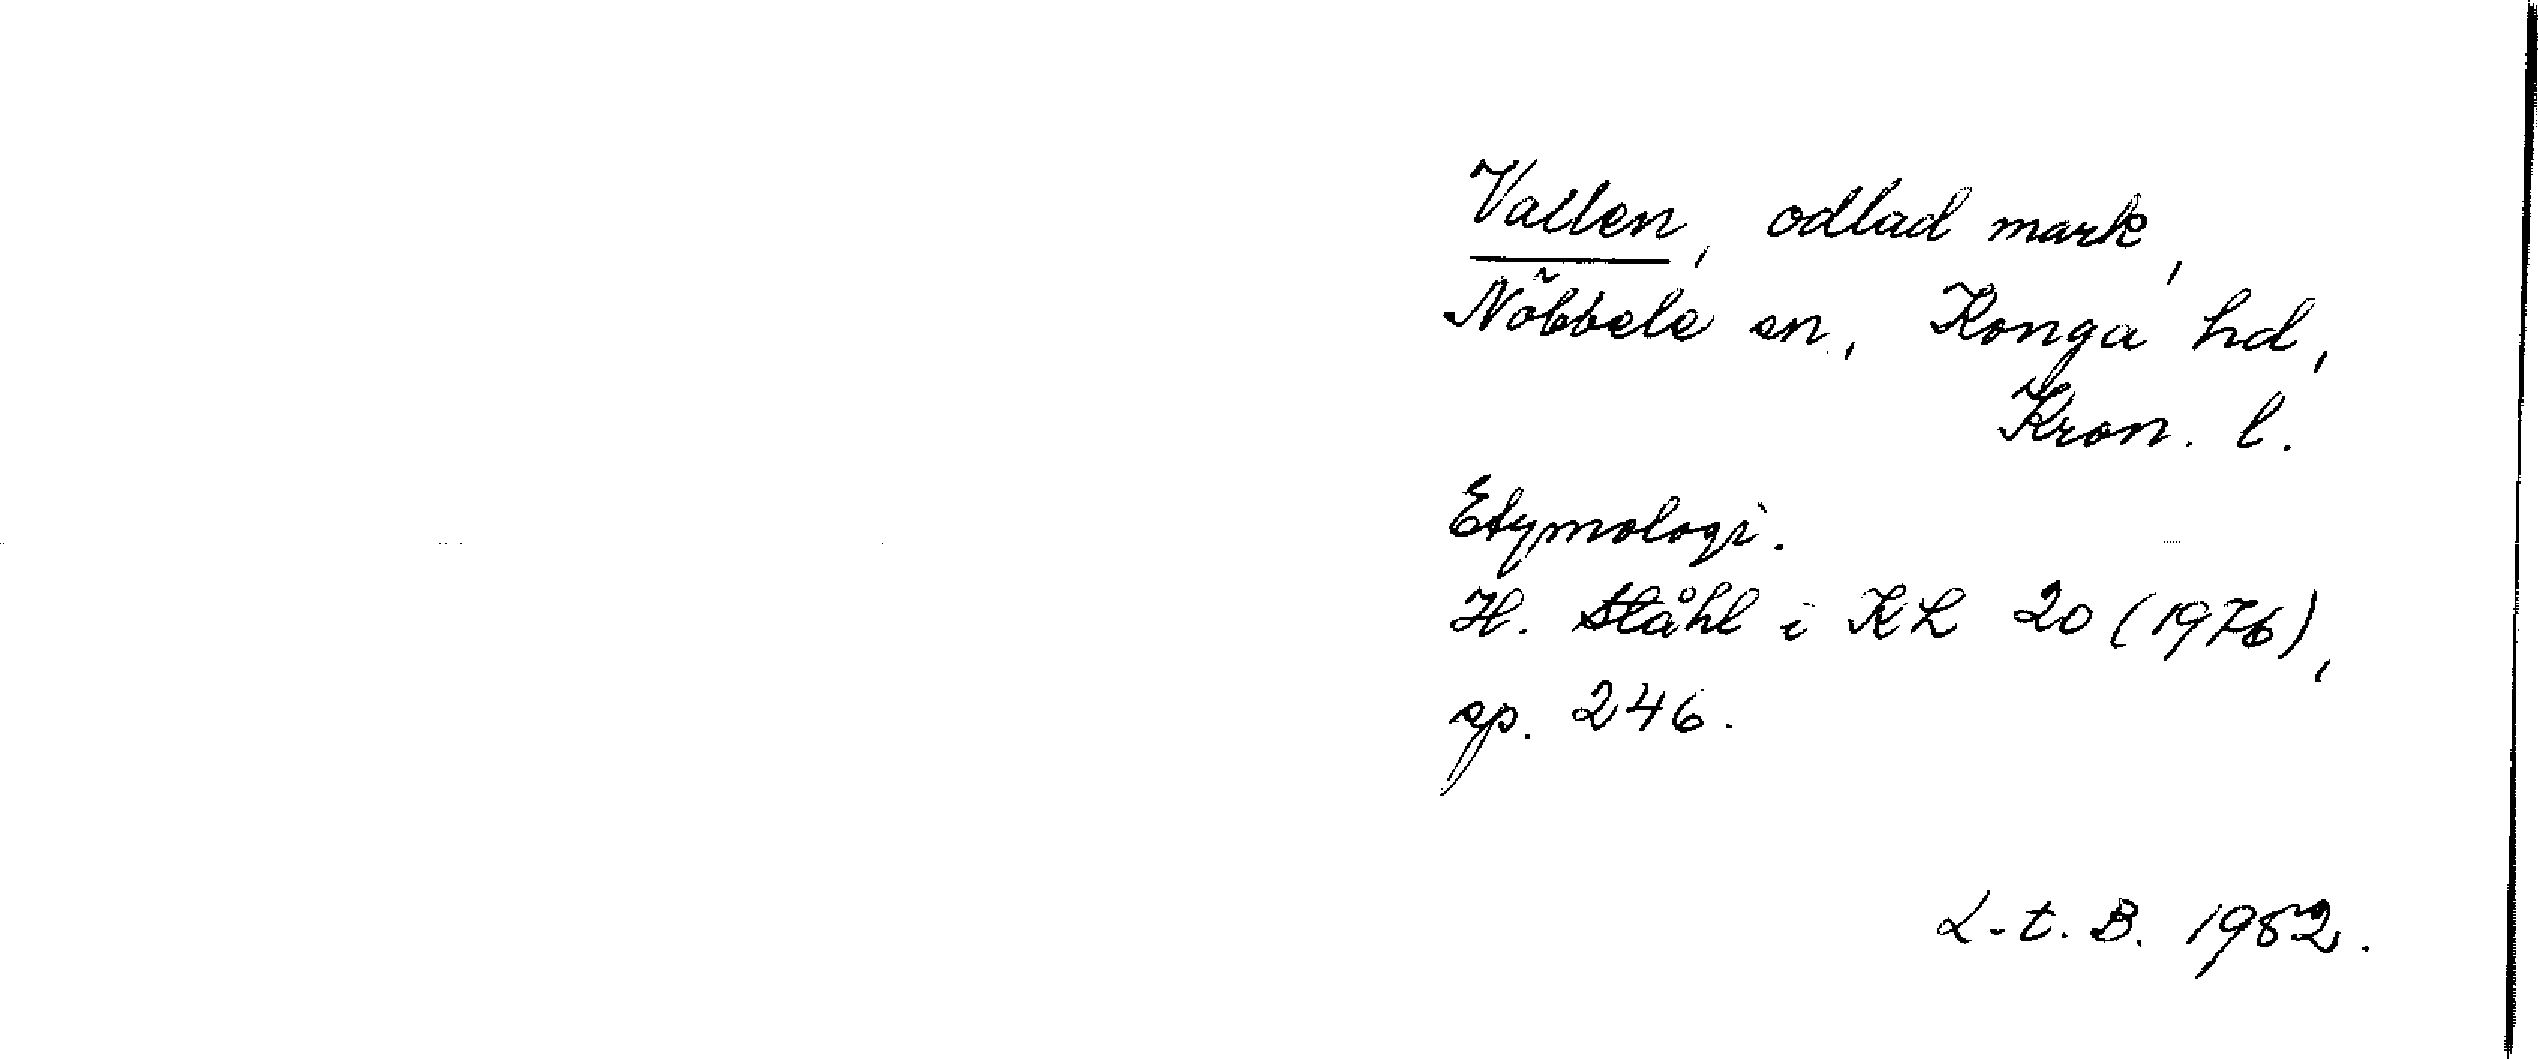 Vallen, odlad mark,
Nöbbele sn, Konga hd,
Kron. l.
Etymologi.
H. Ståhl i KL 20 (1976),
sp. 246.
L-t. B. 1982.